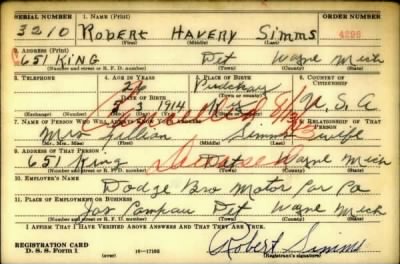 SERIAL NUMBER 1. NAME (Print) ORDER NUMBER
3210 Robert HAVERY Simms 4296
(First) (Middle) (Last)
2. ADDRESS (Print)
651 KING Det Wayne Mich
(Number and street or R. F. D. number) (Town) (County) (State)
3. TELEPHONE 4. AGE IN YEARS 5. PLACE OF BIRTH 6. COUNTRY OF CITIZENSHIP
26
DATE OF BIRTH (Town or county)
1914 U. S. A
(Mo.) (Day) (Yr.) (State or country)
7. NAME OF PERSON WHO WILL ALWAYS KNOW YOUR ADDRESS 8. RELATIONSHIP OF THAT PERSON
Mrs Lillian Simms wife
(Mr., Mrs., Miss) (First) (Middle) (Last)
9. ADDRESS OF THAT PERSON
651 King Det Wayne Mich
(Number and street or R. F. D. number) (Town) (County) (State)
10. EMPLOYER'S NAME
Dodge Bro Motor Car Co
11. PLACE OF EMPLOYMENT OR BUSINESS
Jos Campau Det Wayne Mich
(Number and street or R. F. D. number) (Town) (County) (State)
I AFFIRM THAT I HAVE VERIFIED ABOVE ANSWERS AND THAT THEY ARE TRUE.
Robert Simms
REGISTRATION CARD
D. S. S. Form 1 (over) 16—17105 (Registrant's signature)